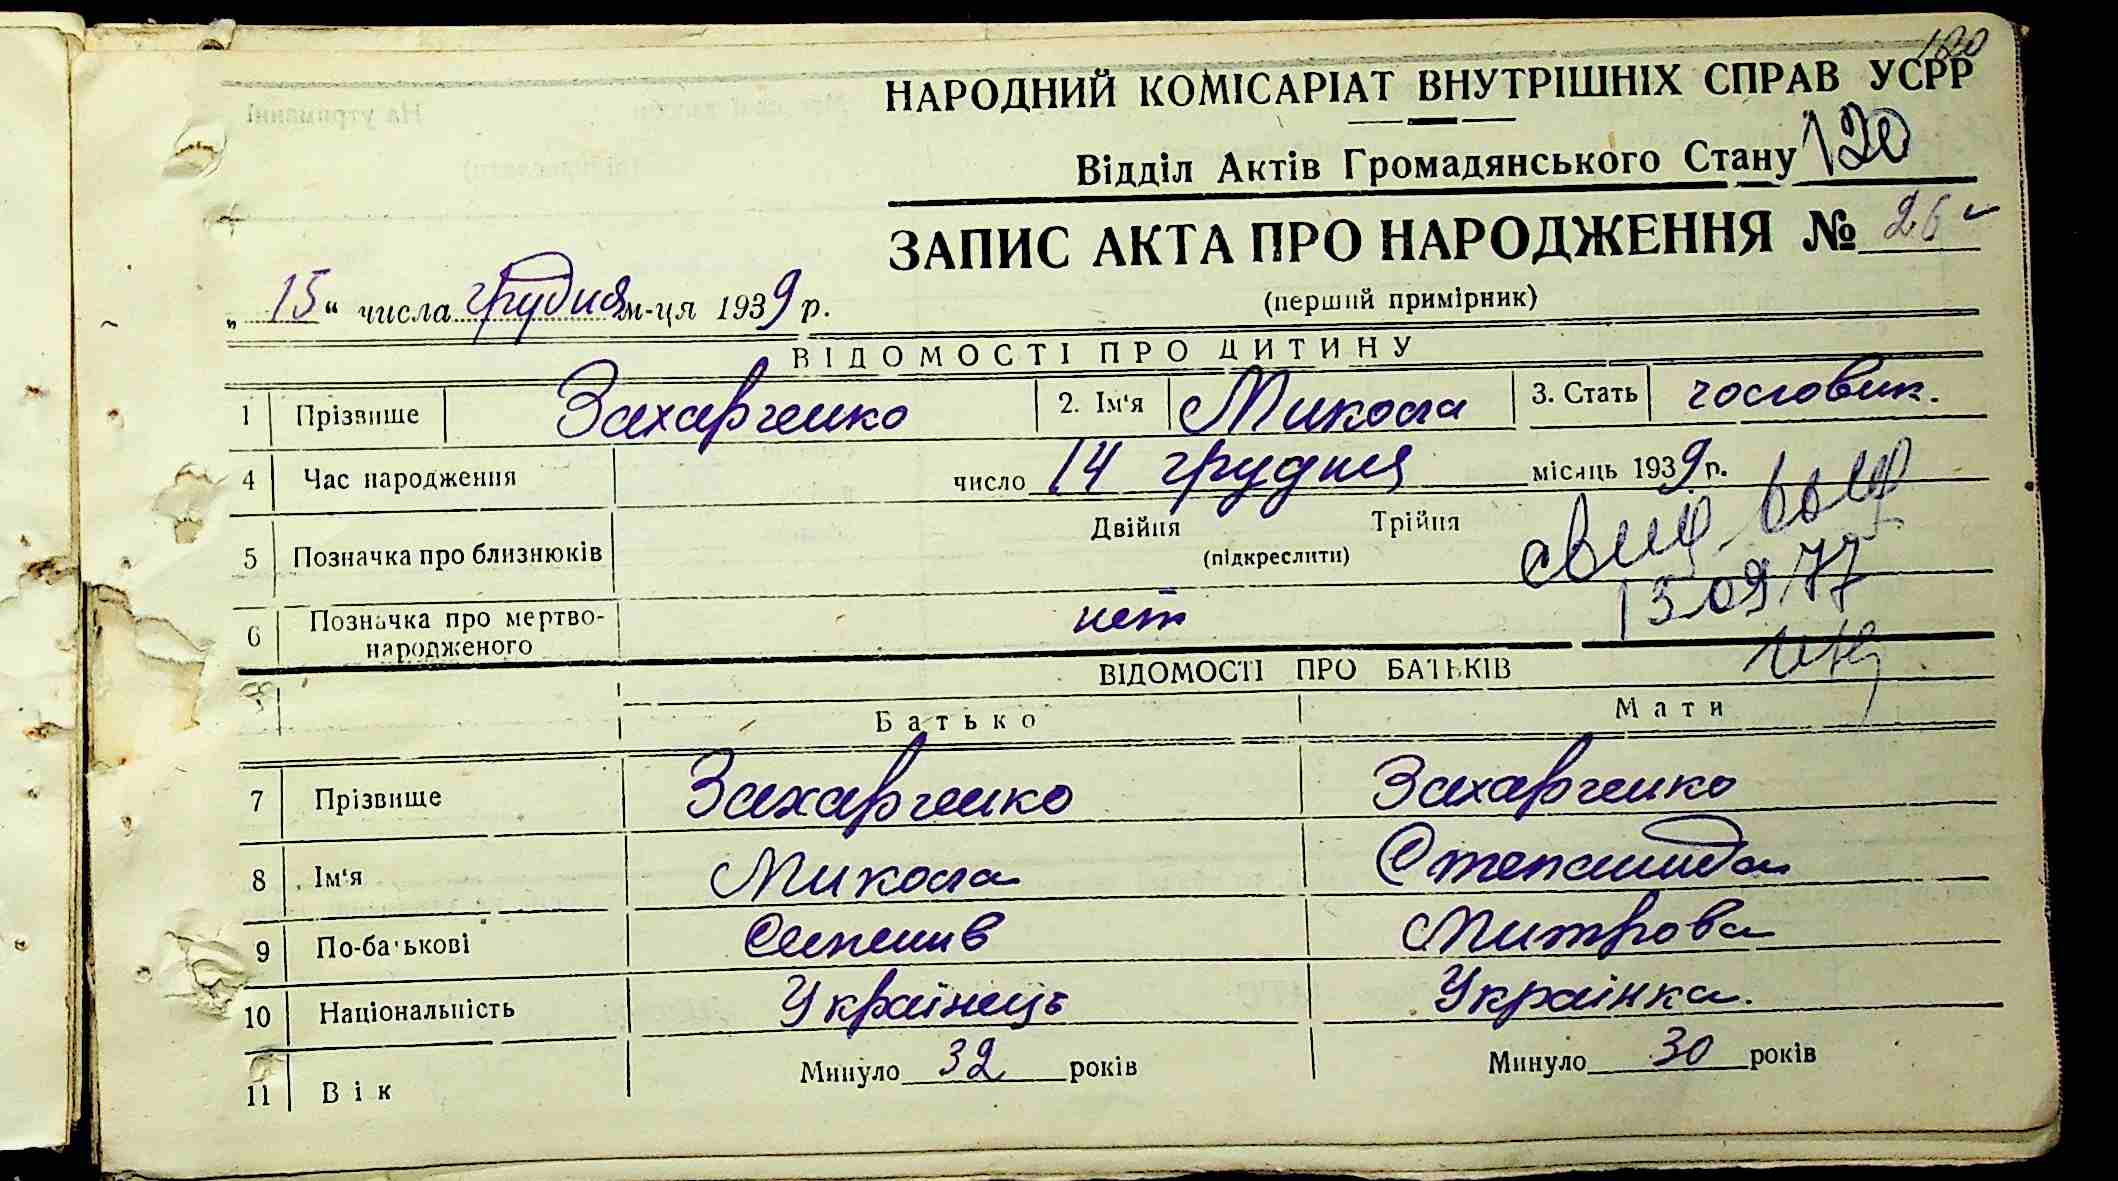 120
НАРОДНИЙ КОМІСАРІАТ ВНУТРІШНІХ СПРАВ УСРР
Відділ Актів Громадянського Стану 120
ЗАПИС АКТА ПРО НАРОДЖЕННЯ № 26
(перший примірник)
„ 15 “ числа грудня м-ця 1939 р.
ВІДОМОСТІ ПРО ДИТИНУ
1 Прізвище Захарченко 2. Ім'я Микола 3. Стать чоловик.
4 Час народження число 14 грудня місяць 1939 р.
5 Позначка про близнюків Двійня Трійня
(підкреслити)
свид. выд
13.09.77
6 Позначка про мертво-
народженого нет
ВІДОМОСТІ ПРО БАТЬКІВ
Батько Мати
7 Прізвище Захарченко Захарченко
8 Ім'я Микола Степанида
9 По-батькові Митрова
10 Національність Українець Українка.
11 Вік Минуло 32 років Минуло 30 років